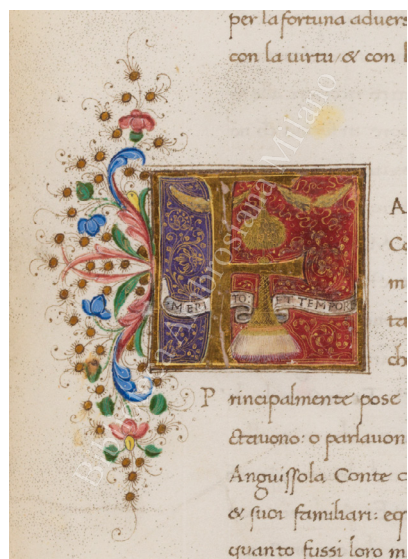 per la fortuna advers
con la uirtu: & con l
A
Ca
m
ta
che
MERI TO: ET TEMPORE
Principalmente pose
ctauono: o parlauon
Anguissola Conte c
& suoi familiari: eq
quanto fussi loro in
Biblioteca Ambrosiana Milano